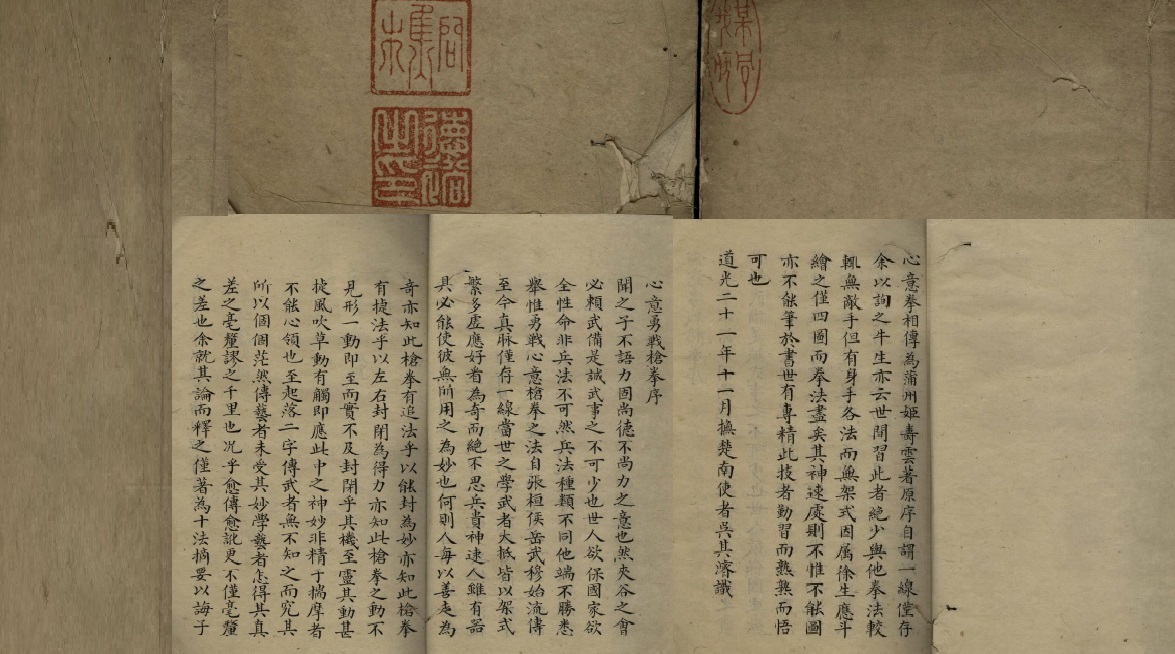 心意拳相傳為蒲州姬壽雲著原序自謂一線僅存
余以詢之牛生亦云世間習此者絕少與他拳法較
輒無敵手但有身手各法而無架式因属徐生應斗
繪之僅四圖而拳法盡矣其神速處則不惟不能圖
亦不能筆於書世有專精此技者勤習而熟熟而悟
可也
道光二十一年十一月撫楚南使者吳其濬識
心意勇戰槍拳序
聞之子不語力固尚德不尚力之意也然夾谷之會
必賴武備是誠武事之不可少也世人欲保國家欲
全性命非兵法不可然兵法種類不同他端不勝悉
舉惟勇戰心意槍拳之法自張桓侯岳武穆始流傳
至今真脉僅存一線當世之學武者大抵皆以架式
繁多虛應好看為奇而絕不思兵貴神速人雖有器
具必能使彼無所用之為妙也何則人每以善走為
奇亦知此槍拳有追法乎以能封為妙亦知此槍拳
有捷法乎以左右封閉為得力亦知此槍拳之動不
見形一動即至而實不及封閉乎其機至靈其動甚
捷風吹草動有觸即應此中之神妙非精于揣摩者
不能心領也至起落二字傳武者無不知之而究其
所以個個茫然傳藝者未受其妙學藝者怎得其真
差之毫釐謬之千里也况乎愈傳愈訛更不僅毫釐
之差也余就其論而釋之僅著為十法摘要以誨子